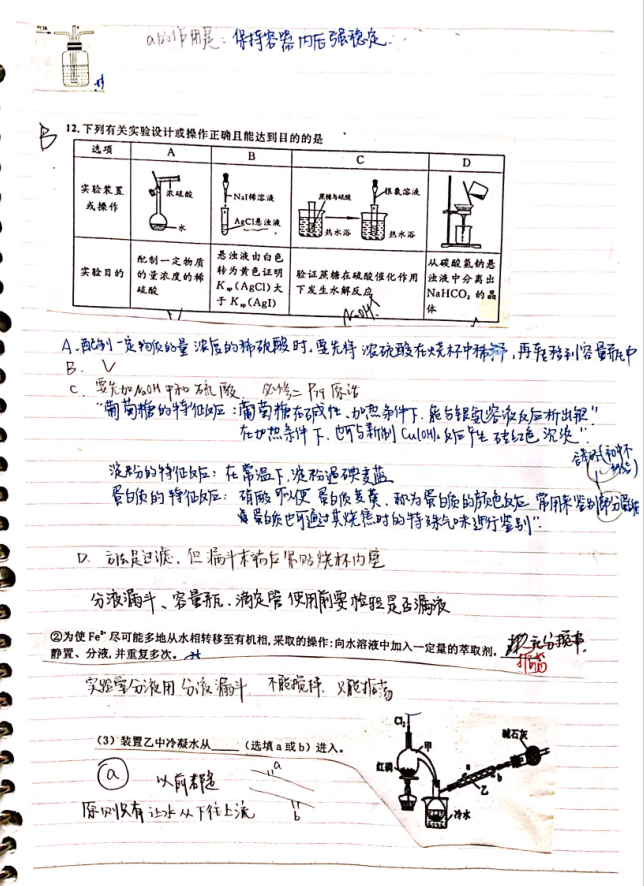 ab的作用是：保持容器内压强稳定.
B 12.下列有关实验设计或操作正确且能达到目的的是
选项 A B C D
实验装置或操作
浓硫酸
水
NaI稀溶液
AgCl悬浊液
蔗糖与硫酸
热水浴
银氨溶液
热水浴
实验目的
配制一定物质的量浓度的稀硫酸
悬浊液由白色转为黄色证明Ksp(AgCl)大于Ksp(AgI)
验证蔗糖在硫酸催化作用下发生水解反应
从碳酸氢钠悬浊液中分离出NaHCO₃的晶体
NaOH
A.配制一定物质的量浓度的稀硫酸时，要先将浓硫酸在烧杯中稀释，再转移到容量瓶中
B. √
C. 要先加NaOH中和硫酸 必修二
“葡萄糖的特征反应：葡萄糖在碱性、加热条件下，能与银氨溶液反应析出银”
在加热条件下，也可与新制Cu(OH)₂反应产生砖红色沉淀”
淀粉的特征反应：在常温下，淀粉遇碘变蓝
蛋白质的特征反应：硝酸可以使蛋白质变黄，称为蛋白质的颜色反应 常用来鉴别部分蛋白质
蛋白质也可通过其烧焦时的特殊气味进行鉴别”
D. 方法是过滤，但漏斗末端应紧贴烧杯内壁
分液漏斗、容量瓶、滴定管使用前要检验是否漏液
②为使Fe³⁺尽可能多地从水相转移至有机相，采取的操作：向水溶液中加入一定量的萃取剂，
静置、分液，并重复多次。
振荡
实验室分液用分液漏斗 不能搅拌 只能振荡
（3）装置乙中冷凝水从____（选填a或b）进入。
Cl₂
甲
红磷
a
b
乙
碱石灰
冷水
ⓐ 以前都是
a
b
原则只有让水从下往上流